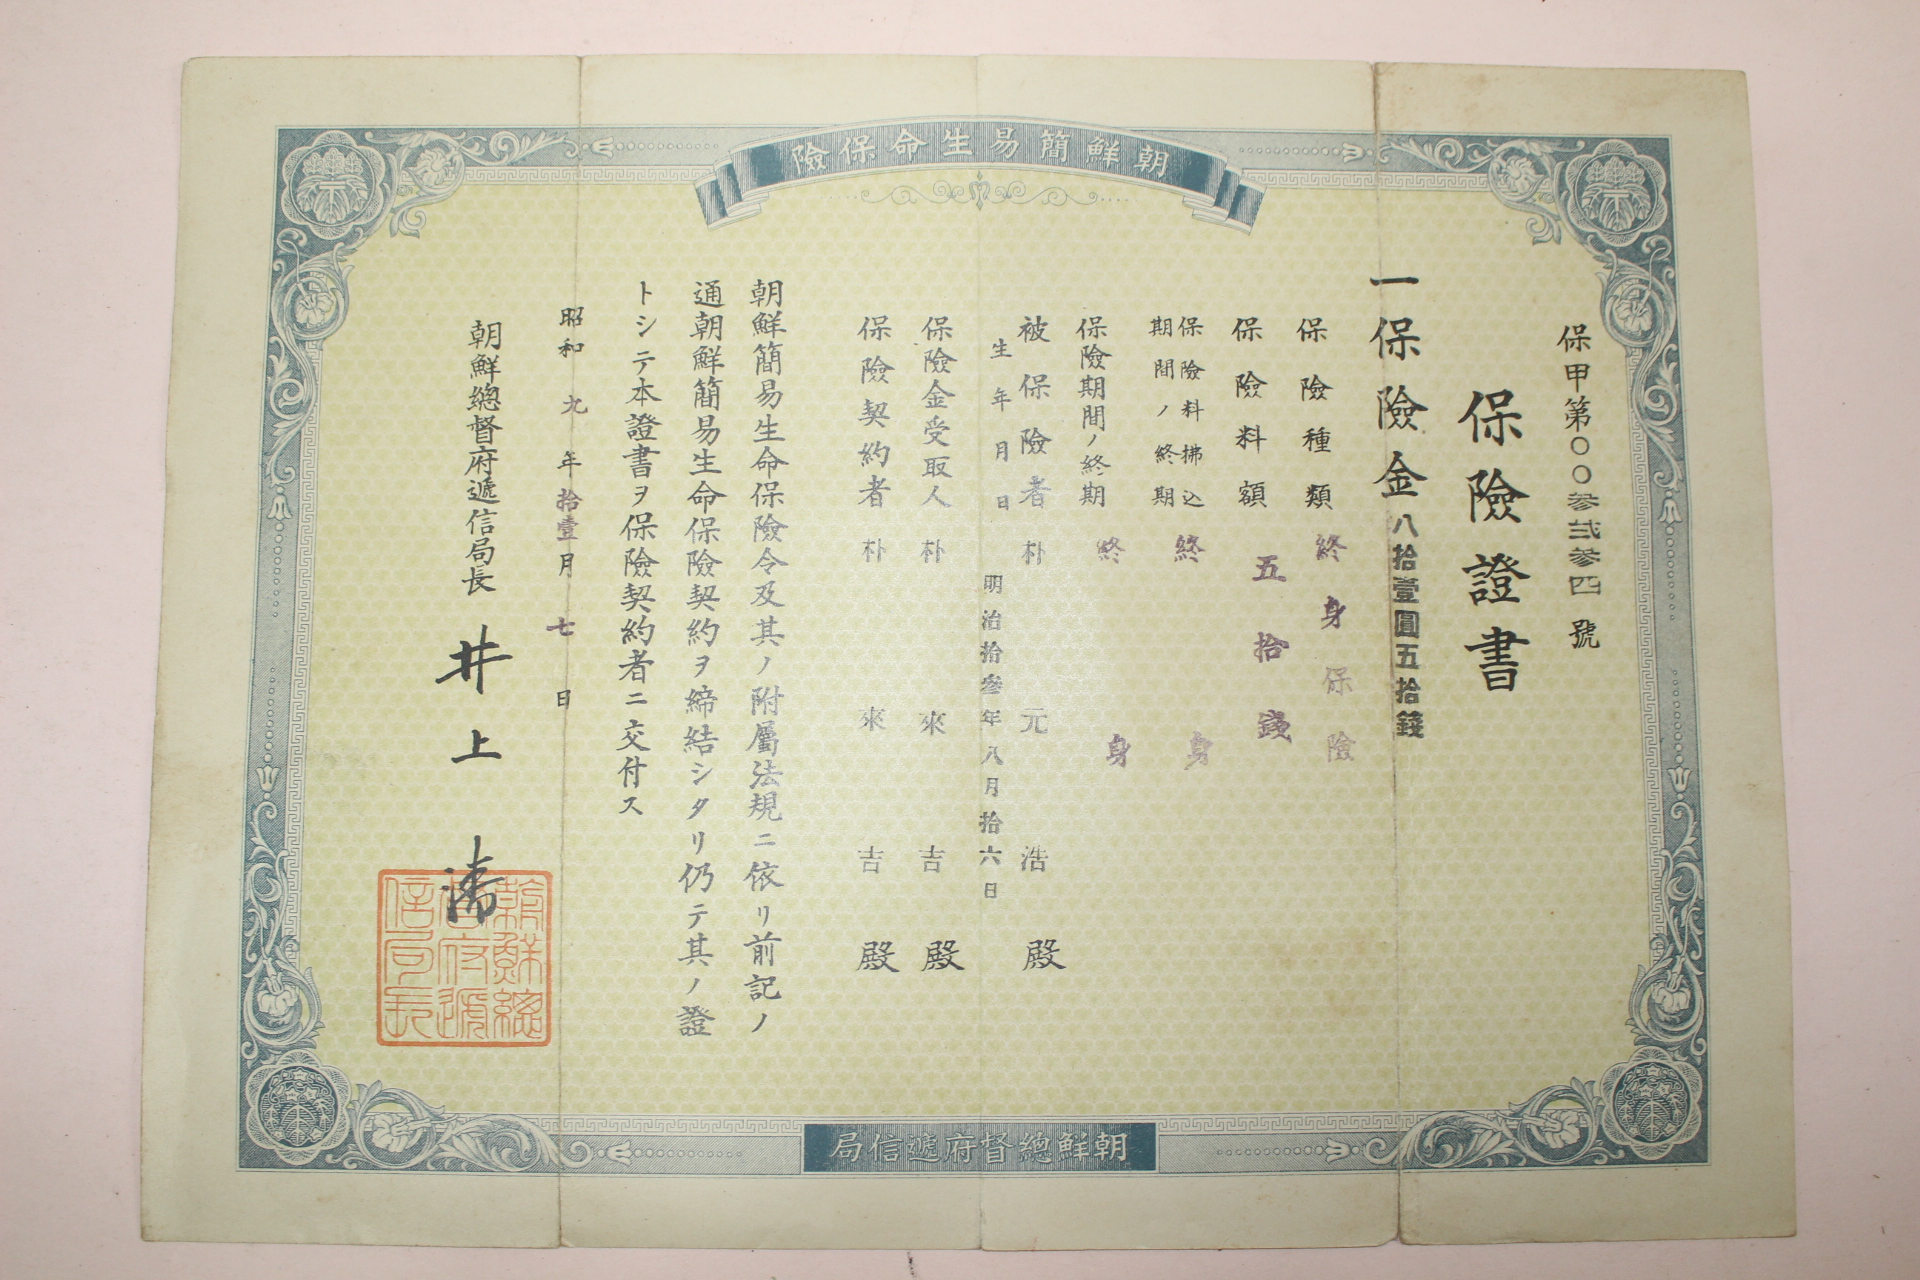 朝鮮簡易生命保險
保甲第〇〇参弐参四號
保險證書
一保險金八拾壹圓五拾錢
保險種類終身保險
保險料額五拾錢
保險料拂込
期間ノ終期終身
保險期間ノ終期終身
被保險者朴元浩殿
生年月日明治拾參年八月拾六日
保險金受取人朴來吉殿
保險契約者朴來吉殿
朝鮮簡易生命保險令及其ノ附屬法規ニ依リ前記ノ
通朝鮮簡易生命保險契約ヲ締結シタリ仍テ其ノ證
トシテ本證書ヲ保險契約者ニ交付ス
昭和九年拾壹月七日
朝鮮總督府遞信局長井上清
朝鮮總督府遞信局長
朝鮮總督府遞信局